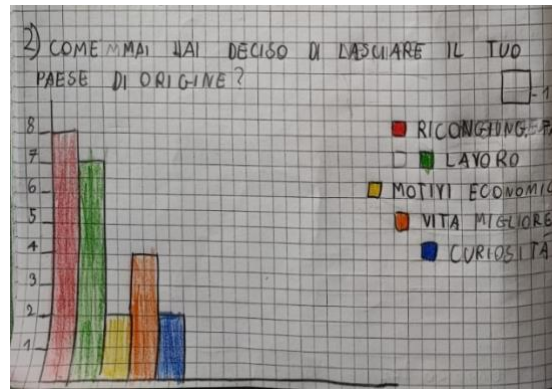 2) COME MMAI HAI DECISO DI LASCIARE IL TUO
PAESE DI ORIGINE?
- 1
RICONGIUNG.
LAVORO
MOTIVI ECONOMIC
VITA MIGLIORE
CURIOSITÀ
8
7
6
5
4
3
2
1